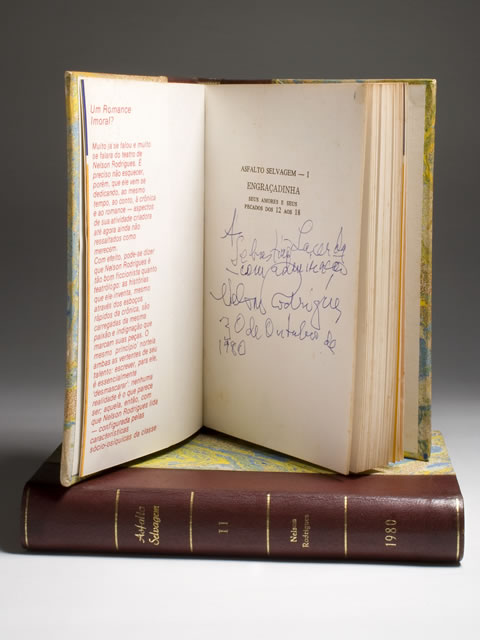 Um Romance
Imoral?
Muito já se falou e muito
se falará do teatro de
Nelson Rodrigues. É
preciso não esquecer,
porém, que ele vem se
dedicando, ao mesmo
tempo, ao conto, à crônica
e ao romance — aspectos
de sua atividade criadora
até agora ainda não
ressaltados como
merecem.
Com efeito, pode-se dizer
que Nelson Rodrigues é
tão bom ficcionista quanto
teatrólogo: as histórias
que ele inventa, mesmo
através dos esboços
rápidos da crônica, são
carregadas da mesma
paixão e indignação que
marcam suas peças. O
mesmo princípio norteia
ambas as vertentes de seu
talento: escrever, para ele,
é essencialmente
'desmascarar': nenhuma
realidade é o que parece
ser; aquela, então, com
que Nelson Rodrigues lida
— configurada pelas
características
sócio-psíquicas da classe
ASFALTO SELVAGEM — I
ENGRAÇADINHA
SEUS AMORES E SEUS
PECADOS DOS 12 AOS 18
A
Sebastião Lacerda
com admiração
Nelson Rodrigues
30 de Outubro de
1980
Asfalto
Selvagem
II
Nelson
Rodrigues
1980